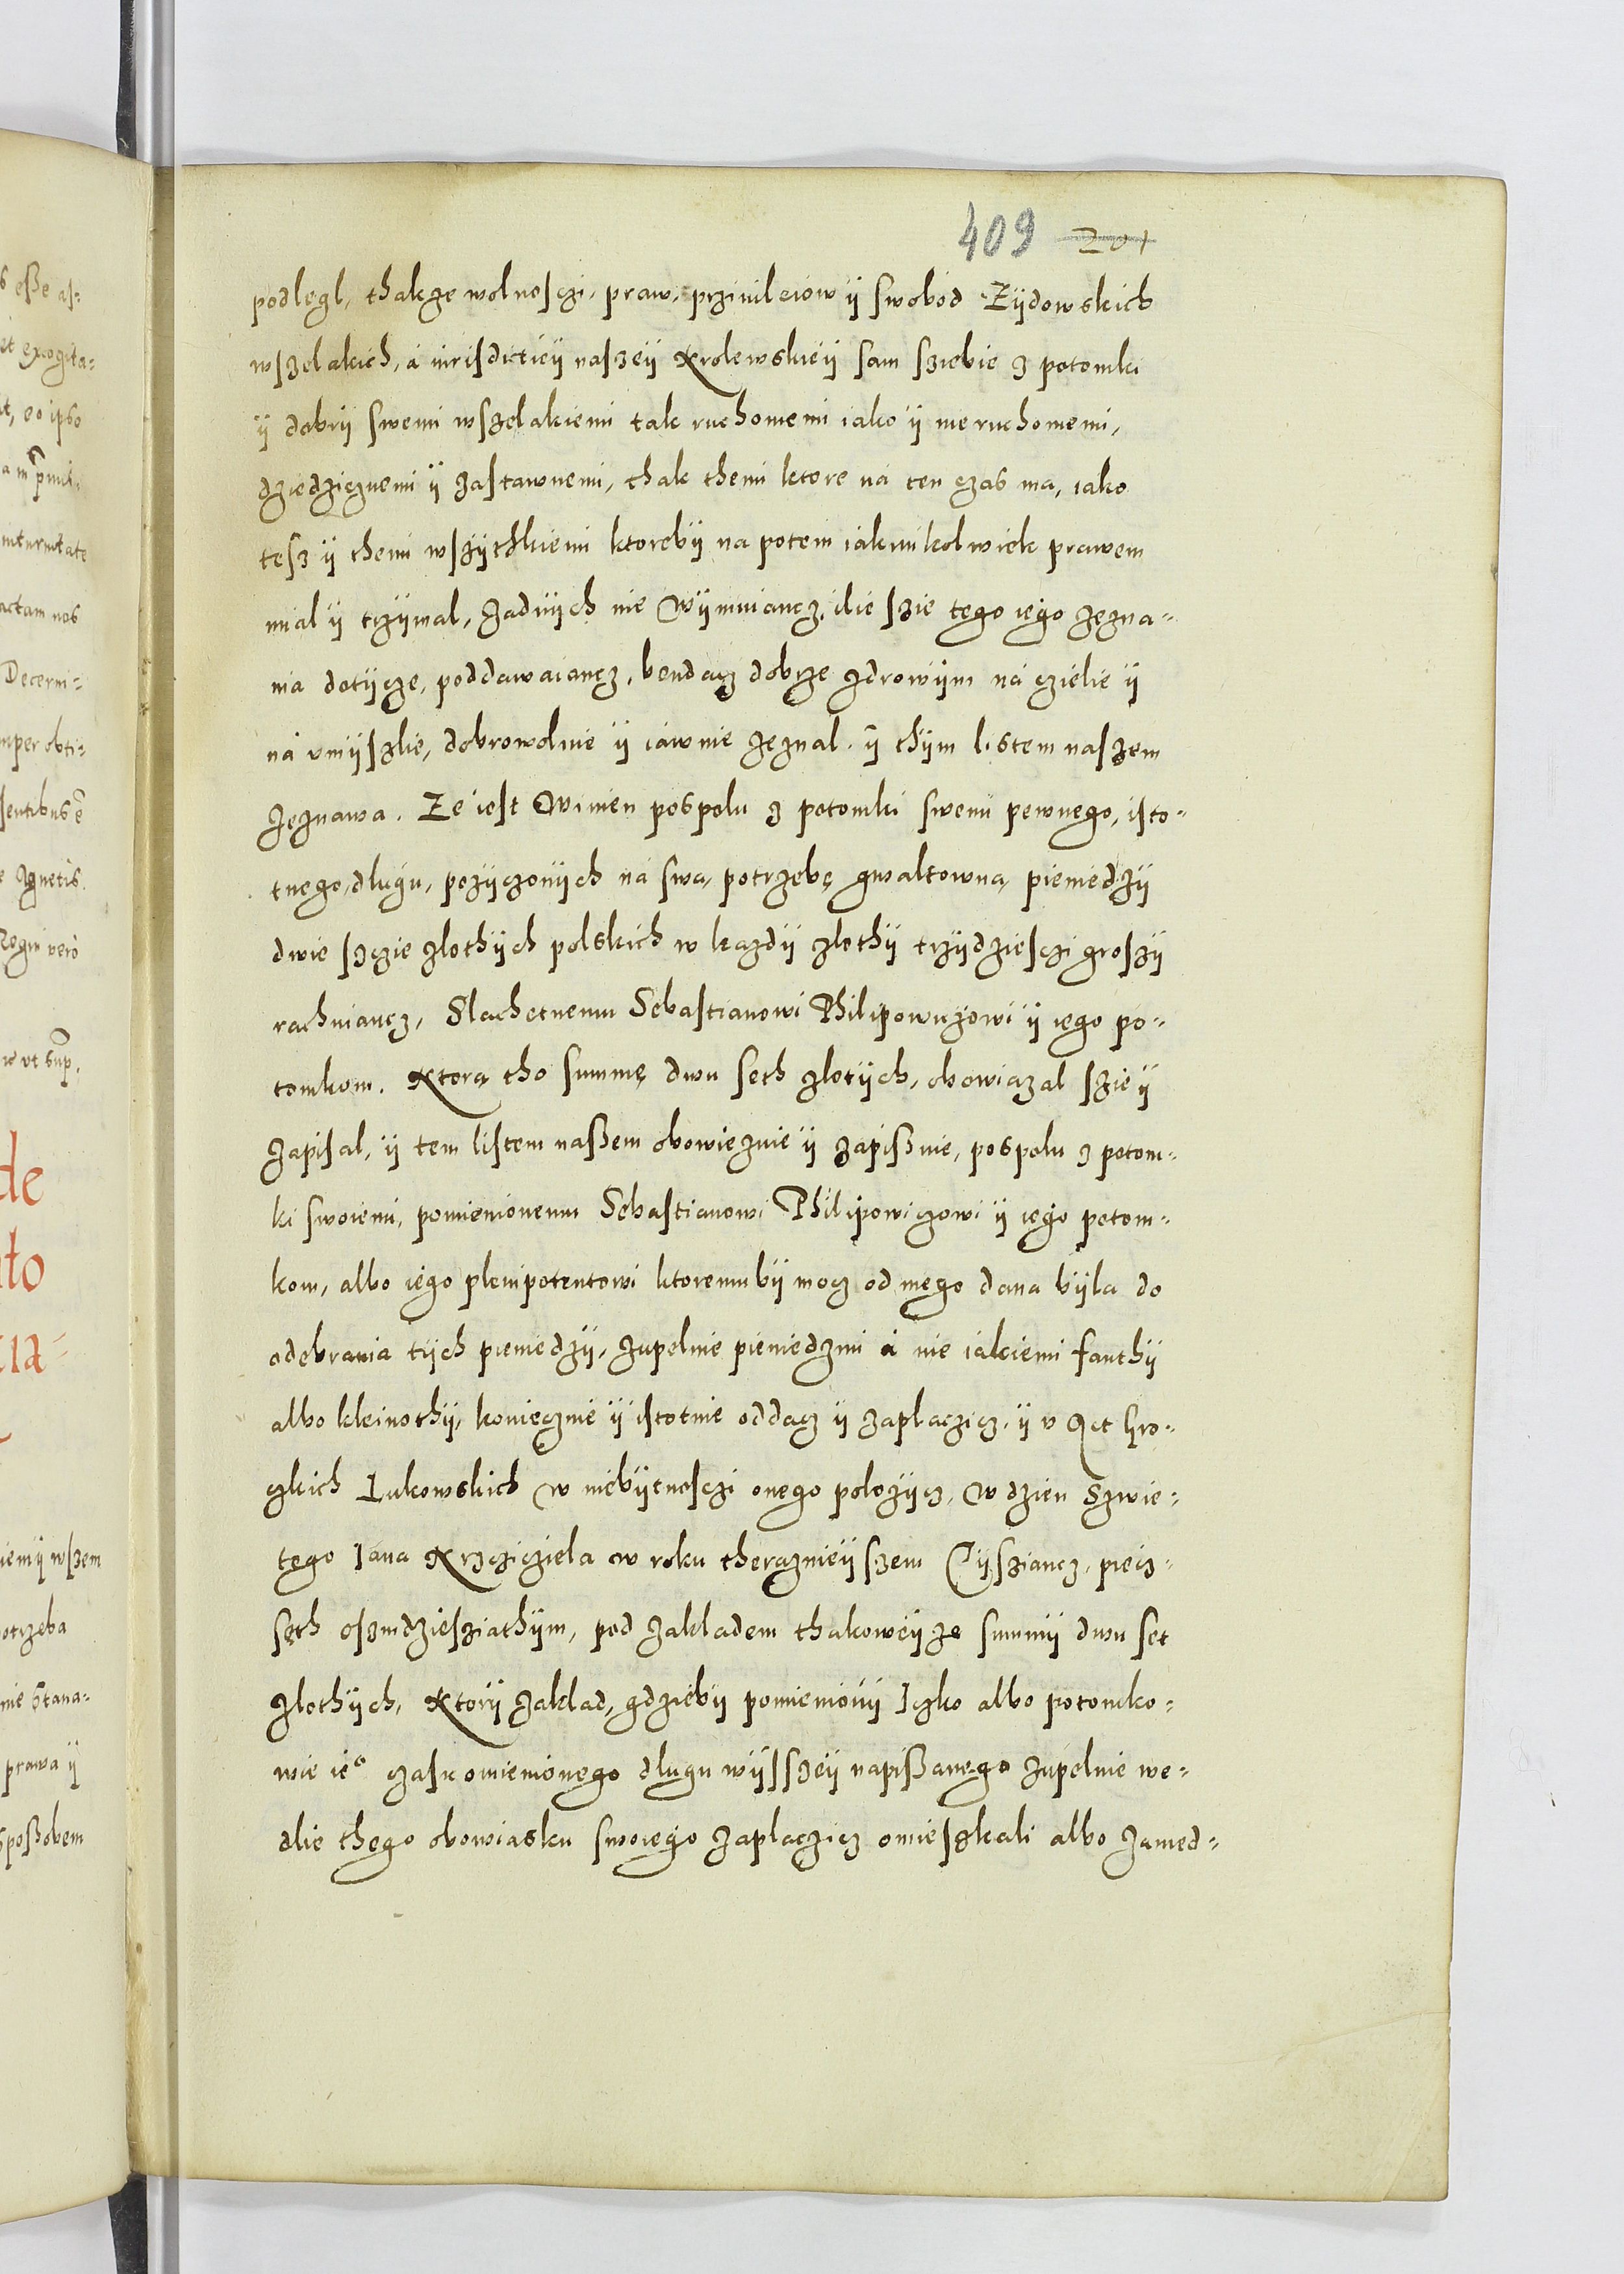 409 201
podlegl, thakze wolnosczi, praw, prziuileiow ÿ swobod Zÿdowskich
wszelakich, a iurisdictieÿ naszeÿ Krolewskieÿ sam sziebie z potomki
ÿ dobrÿ swemi wszelakiemi tak ruchomemi iako ÿ nieruchomemi,
dziedzicznemi ÿ zastawnemi, thak themi ktore na ten czas ma, iako
tesz ÿ themi wszÿthkiemi ktorebÿ na potem iakimkolwiek prawem
mial ÿ trzÿmal, zadnÿch nie wÿimuiancz, ilie szie tego iego zezna-
nia dotÿcze, poddawaiancz, bendacz dobrze zdrowÿm na czielie ÿ
na vmÿszlie, dobrowolnie ÿ iawnie zeznal. ÿ thÿm listem naszem
zeznawa. Ze iest winien pospolu z potomki swemi pewnego, isto-
tnego, dlugu, pozÿczonÿch na swa, potrzebę gwaltowną pieniedzÿ
dwie szczie zlothÿch polskich w kazdÿ zlothÿ trzÿdziesczi groszÿ
rachuiancz, Slachetnemu Sebastianowi Philipowiczowi ÿ iego po-
tomkom. Ktorą tho summę dwu seth zlotÿch, obowiazal szie ÿ
zapisal, ÿ tem listem naßem obowiezuie ÿ zapißuie, pospolu z potom-
ki swoiemi, pomienionemu Sebastianowi Philipowiczowi ÿ iego potom-
kom, albo iego plenipotentowi ktoremubÿ mocz od niego dana bÿla do
odebrania tÿch pieniedzÿ, zupelnie pieniedzmi a nie iakiemi fanthÿ
albo kleinothÿ, koniecznie ÿ istotnie oddacz ÿ zaplaczicz, ÿ v Act Gro-
czkich Lukowskich w niebÿtnosczi onego polozÿcz, w dzien Szwie-
tego Jana Krzcziciela w roku theraznieÿszem Tÿsziancz, piecz-
seth oszmdziesziathÿm, pod zakladem thakoweÿze summÿ dwu set
zlothÿch, Ktorÿ zaklad, gdziebÿ pomienionÿ Iczko albo potomko-
wie ie° czasu omienionego dlugu wÿsszeÿ napißanego zupelnie we-
dlie thego obowiasku swoiego zaplaczicz omieszkali albo zanied-